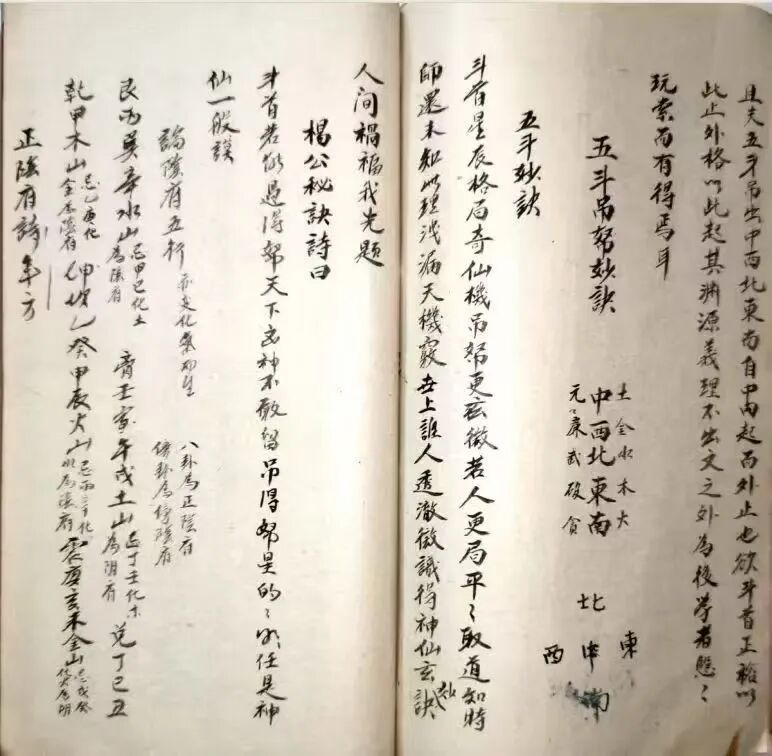 且夫五斗吊出中西北東南自中內起而外止也欲斗首正格以
此止外格以此起其渊源義理不出文之外為後学者慇〻
玩索而有得焉耳
五斗吊帑妙訣
土金水木火
中西北東南
元〻廉武破貪
北
東
中
西
南
五斗妙訣
斗首星辰格局奇仙機吊帑更玄微若人更局平〻取道如時
師還未知此理洩漏天機竅世上誰人透澈微識得神仙玄訣
人间禍福我先題
楊公秘訣詩曰
斗首若能過得帑天下玄神不敢留吊得帑是的〻 任是神
仙一般誤
論陰府五行
亦從化氣而生
八卦為正陰府
艮丙巽辛水山
忌甲己化土
為陰府
离壬寅午戌土山
忌丁壬化木
為阴府
兌丁巳丑
乾甲木山
忌乙庚化
金為陰府
坤 乙癸申辰火山
忌丙辛化
水為陰府
震庚亥未金山
忌戊癸
化火為阴
正陰府詩
年方